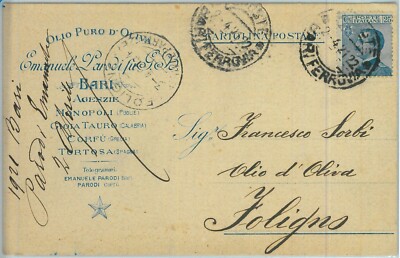 OLIO PURO D'OLIVA
CARTOLINA POSTALE
Emanuele Parodi fu G.
BARI
AGENZIE
MONOPOLI (PUGLIE)
GIOIA TAURO (CALABRIA)
CORFÙ (GRECIA)
TORTOSA (SPAGNA)
Telegrammi:
EMANUELE PARODI BARI
PARODI CORFÙ
1921 Bari
Parodi Emanuele
BARI FERROVIA
BARI FERROVIA
FOLIGNO
Sigr. Francesco Sorbi
Olio d'Oliva
Foligno